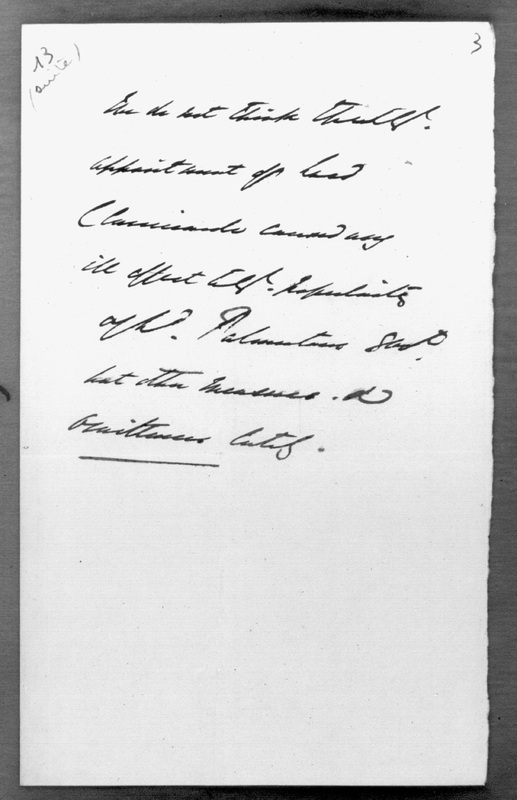 13
(suite)
3
We do not think that Ld.
appointment of Lord
Clanricarde caused any
ill effect to Popularity
of Ld. Palmerston's Govt.
but other measures. &
omittences lately.